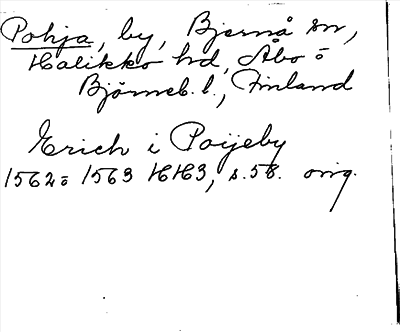 Pohja, by, Bjernå sn,
Halikko hd, Åbo o
Björneb. l., Finland
Erich i Poijeby
1562 o 1563 HH3, s. 58. orig.